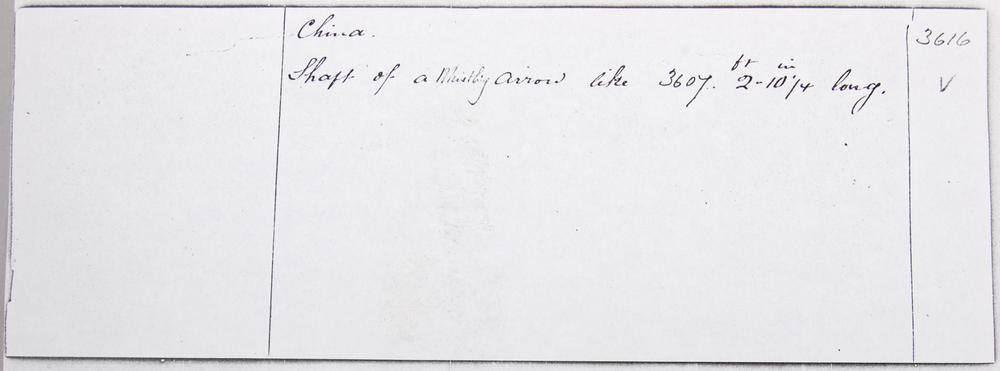 China.
3616
ft in
Shaft of a arrow like 3607. 2-10 1/4 long.
V